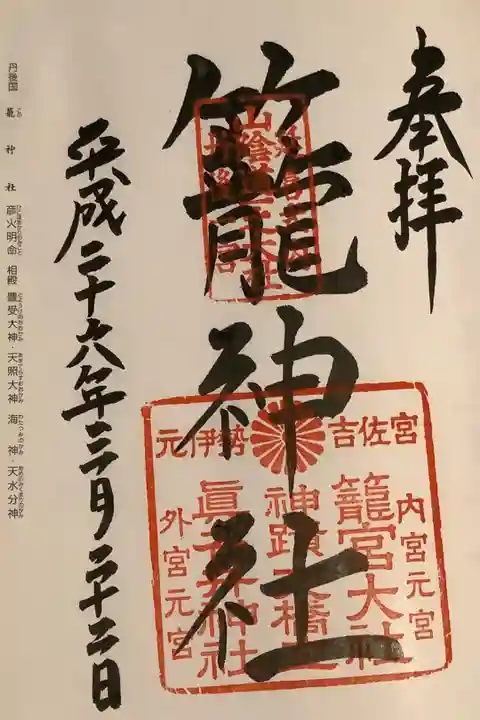 奉拝
籠神社
山陰道一之大社
吉佐宮
元伊勢
内宮元宮
籠宮大社
神蹟天橋立
眞名井神社
外宮元宮
平成二十六年三月二十二日
丹後国 籠神社 彦火明命 相殿 豊受大神・天照大神 海神・天水分神